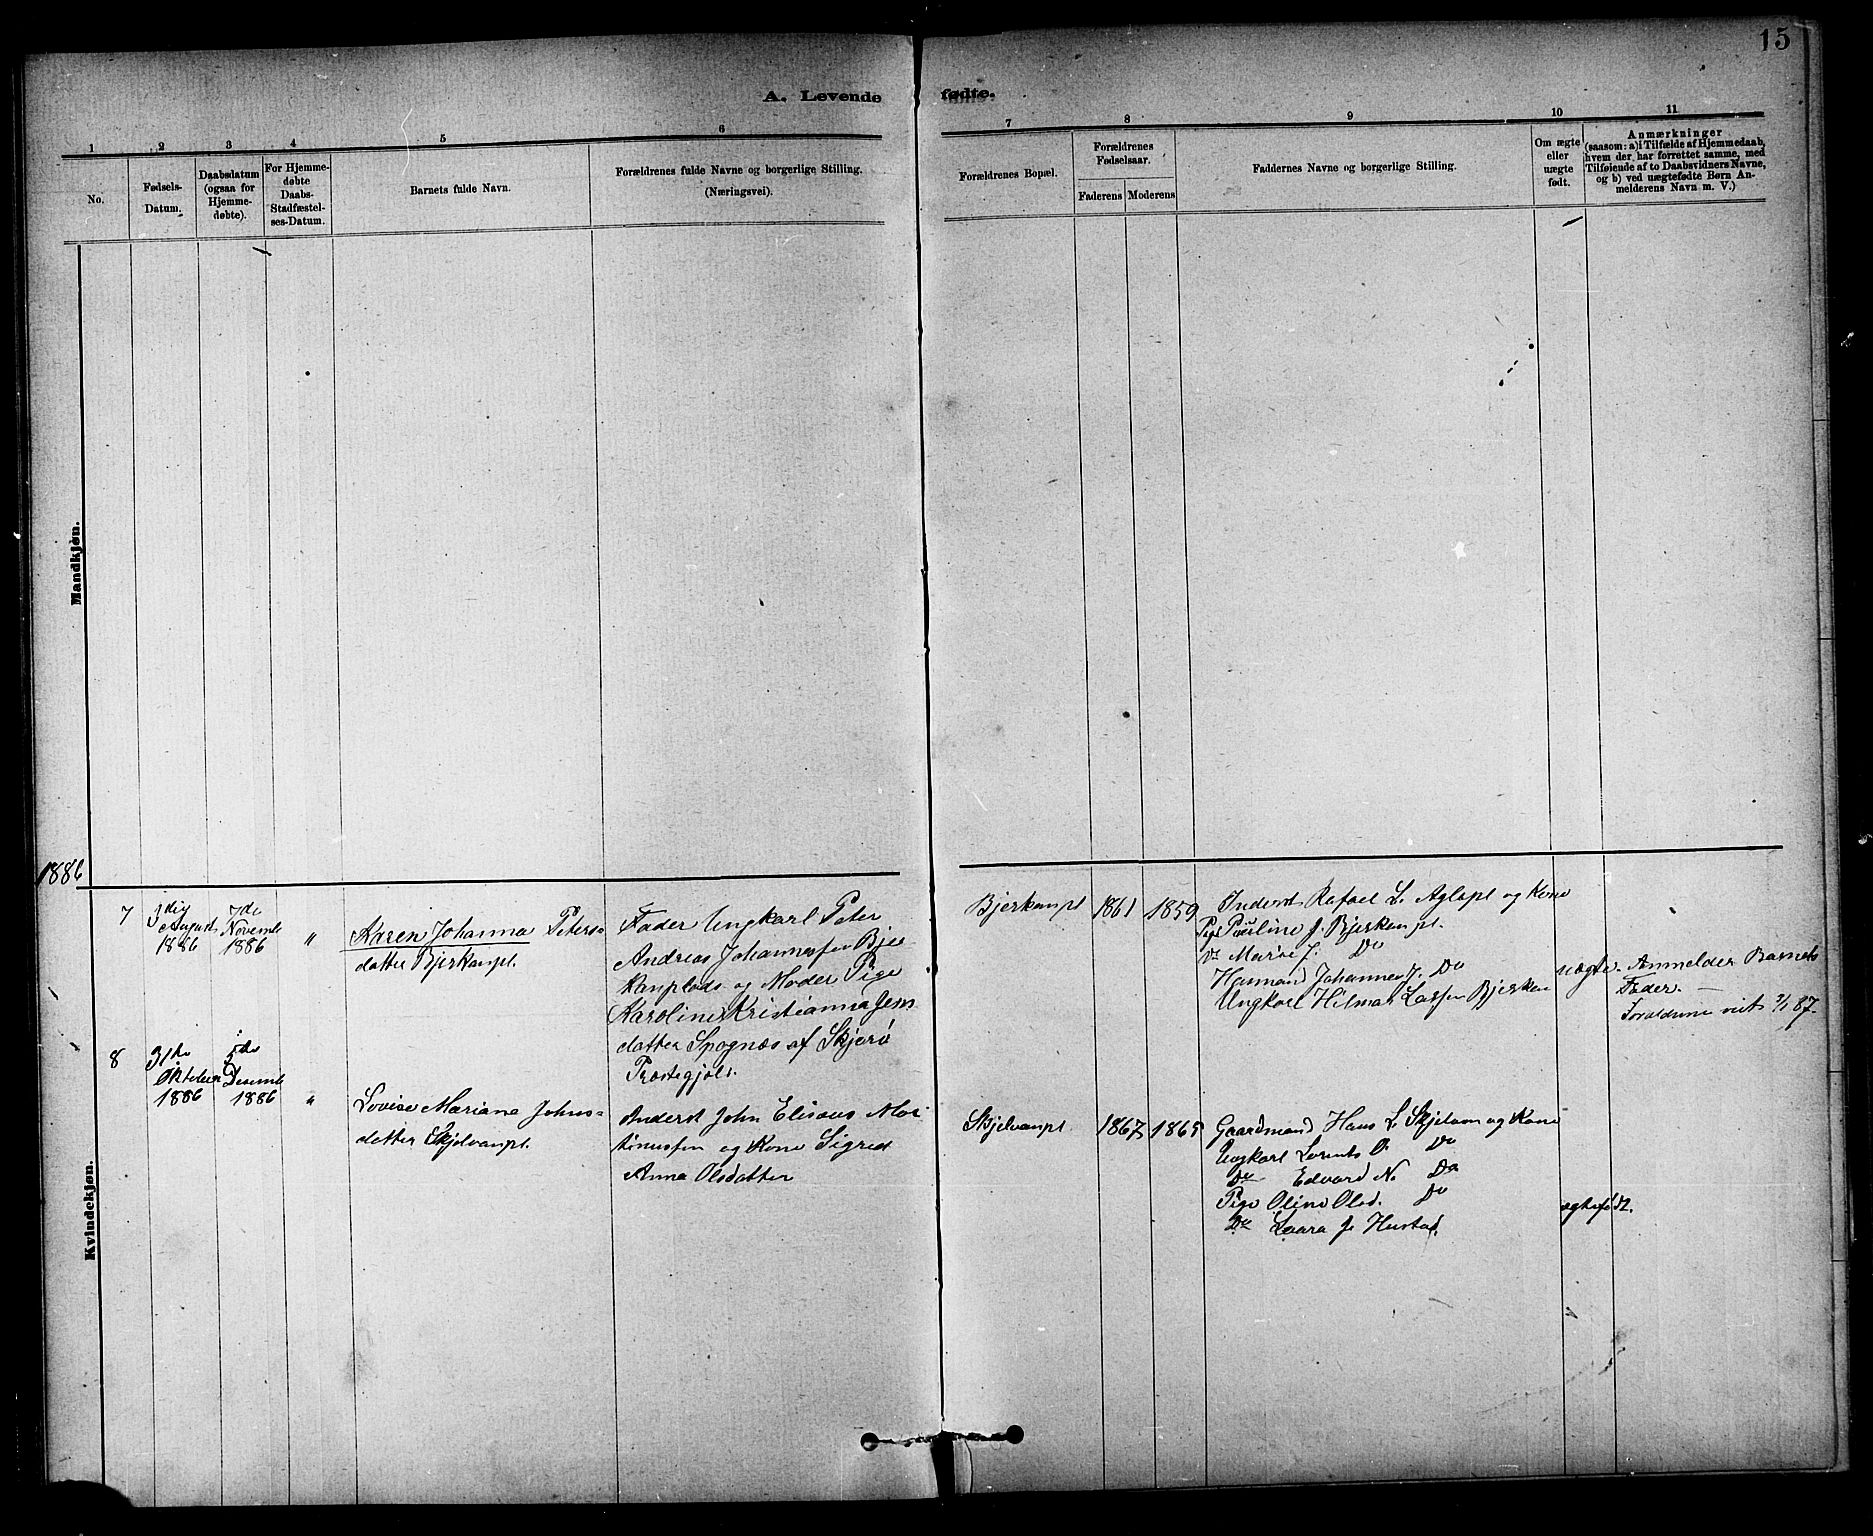 15
A. Levende fødte.
1 2 3 4 5 6 7 8 9 10 11
No.
Fødsels-
Datum.
Daabsdatum
(ogsaa for
Hjemme-
døbte).
For Hjemme-
døbte
Daabs-
Stadfæstel-
ses-Datum.
Barnets fulde Navn.
Forældrenes fulde Navne og borgerlige Stilling.
(Næringsvei).
Forældrenes Bopæl.
Forældrenes
Fødselsaar.
Faderens Moderens
Faddernes Navne og borgerlige Stilling.
Om ægte
eller
uægte
født.
Anmærkninger
(saasom: a) i Tilfælde af Hjemmedaab,
hvem der har forrettet samme, med
Tilføiende af to Daabsvidners Navne,
og b) ved uægtefødte Børn An-
melderens Navn m. V.)
Mandkjøn.
1886
Kvindekjøn.
7
August
1886
7de
Novemb
1886
"
Karen Johanna Peters-
datter Bjerkanpl.
Fader Ungkarl Peter
Andreas Johannessen Bjer
kanplads og Moder Pige
Karoline Kristianna Jens
datter Spognæs af Skjerø
Præstegjæld.
Bjerkanpl
1861
1859
Inderst Rafael L. Aglapl og Kone
Pige Pauline J. Bjerkanpl.
Do Marie J. Do
Herman Johannes J. Do
Ungkarl Hilmar Larsen Bjerkan
uægte.
Anmelder Barnets
Fader. —
Forældrene viet 87.
8
31te
Oktober
1886
5te
Desemb
1886
"
Lovise Mariana Johns-
datter Skjelvanpl.
Inderst John Elisæus Mor
tinussen og Kone Sigrid
Anna Olsdatter
Skjelvanpl
1867
1865
Gaardmand Hans L. Skjelvan og Kone
Ungkarl Lorents O. Do
Do Edvard N. Do
Pige Oline Olsd. Do
Do Laara J. Hustad.
ægtefødt.